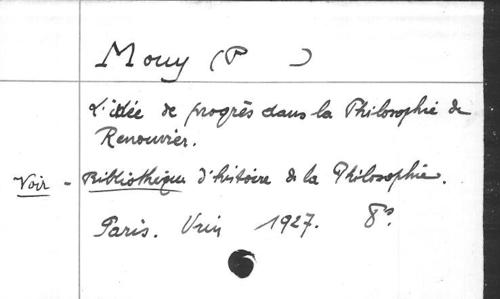 Mouy (P )
L'idée de progrès dans la Philosophie de
Renouvier.
Voir - Bibliothèque d'histoire de la Philosophie.
Paris. Vrin 1927. 8°.